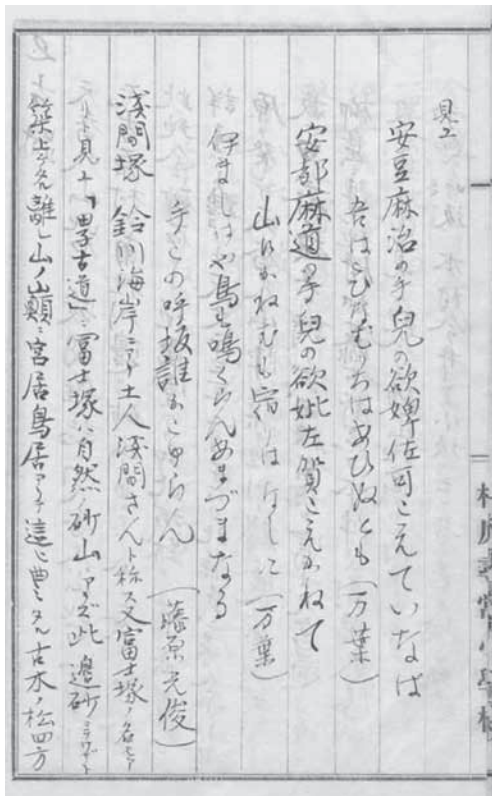 見ユ
安豆麻治の手兒の欲婢佐可こえていなば
吾はこひなむのちはあひぬとも(万葉)
安都麻道の手兒の欲妣左賀こえかねて
山にかねむも宿りはなしに(万葉)
伊ましはや鳥も鳴くらんあづまなる
手この呼坂誰かこゆらん(藤原光俊)
淺間塚 鈴川海岸ニアリ土人淺間さんト称ス又富士塚ノ名モア
ト見ユ「田子古道」ニ富士塚ハ自然ノ砂山ニアラズ此邊砂ヲ
築上タル離レ山ノ山顚ニ宮居鳥居アリテ這ヒ曲ミタル古木ノ松四方